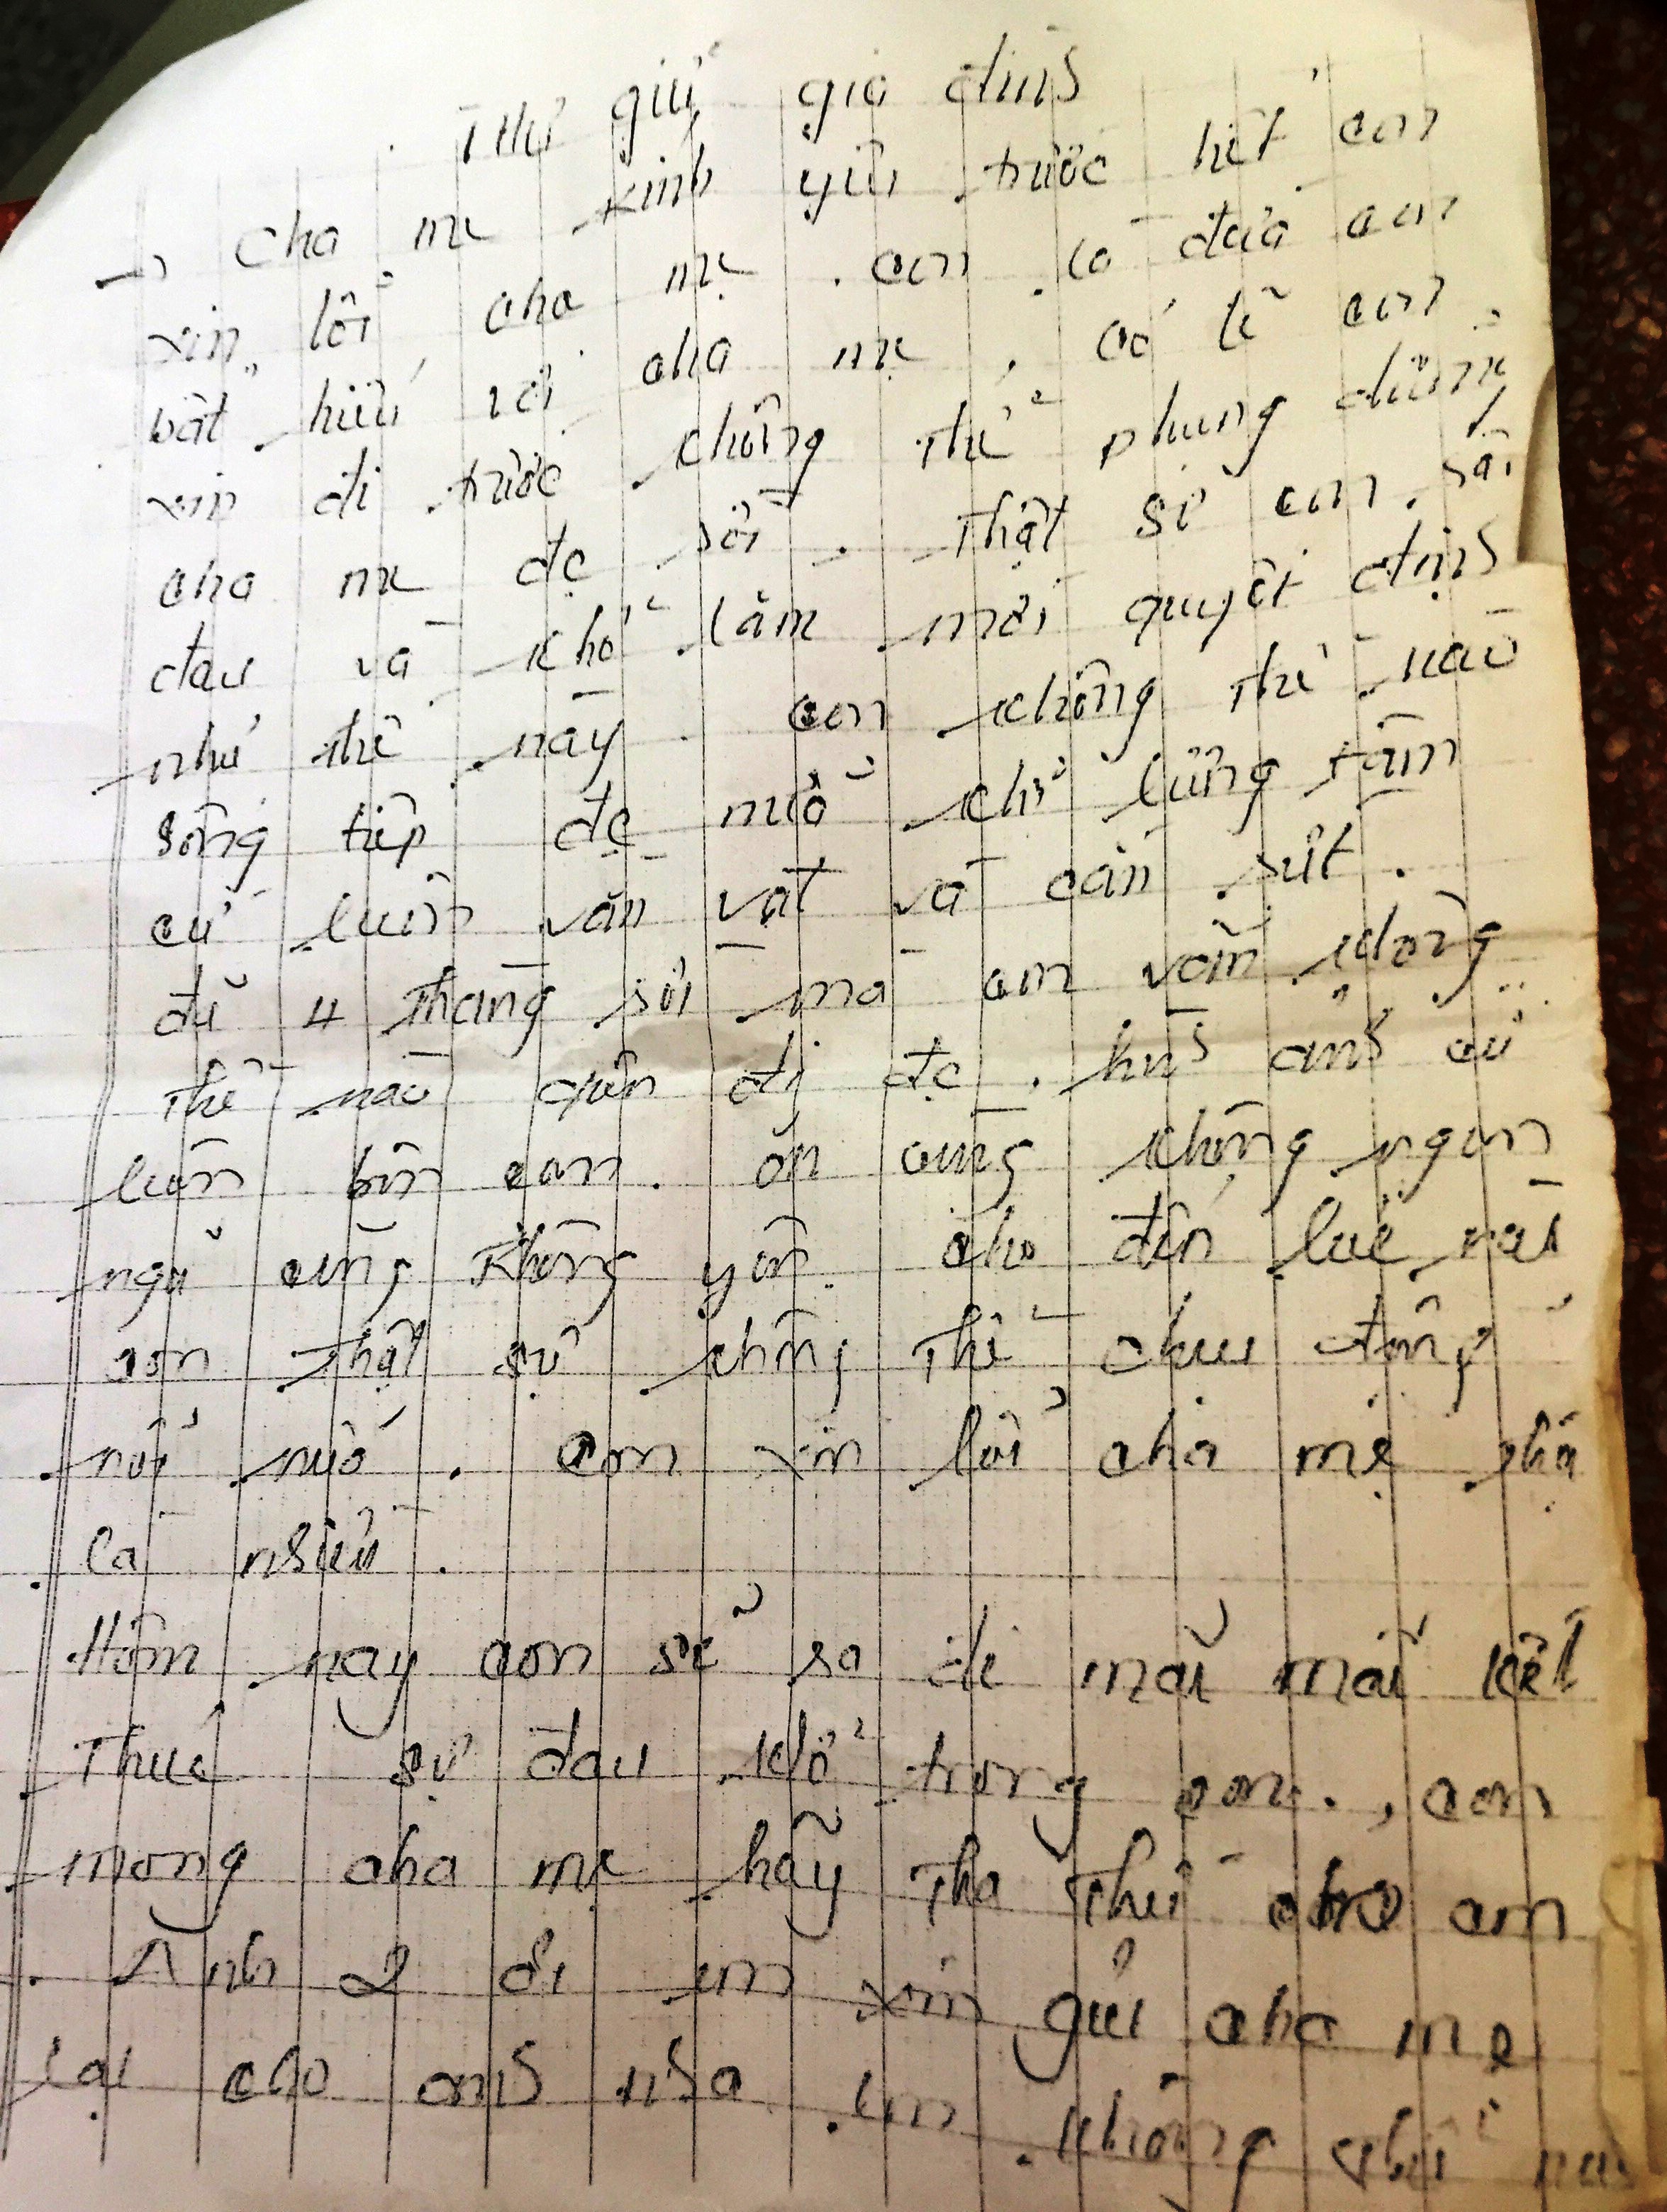 Thư gửi gia đình
→ cha mẹ kính yêu trước hết con
xin lỗi cha mẹ. con là đứa con
bất hiếu với cha mẹ. có lẽ con
xin đi trước không thể phụng dưỡng
cha mẹ đc rồi. Thật sự con rất
đau và khổ lắm mới quyết định
như thế này. con không thể nào
sống tiếp đc nữa khi lương tâm
cứ luôn vằn vặt và cắn rứt.
đã 4 tháng rồi mà con vẫn không
thể nào quên đi đc. hình ảnh cứ
luôn bên con. ăn cũng không ngon
ngủ cũng không yên. cho đến lúc này
con thật sự không thể chịu đựng
nổi nữa. con xin lỗi cha mẹ
cả nhiều.
Hôm nay con sẽ ra đi mãi mãi kết
Thúc sự đau khổ trong con., con
mong cha mẹ hãy tha thứ cho con
. Anh 2 ơi em xin gửi cha mẹ
lại cho anh nha. em không thể